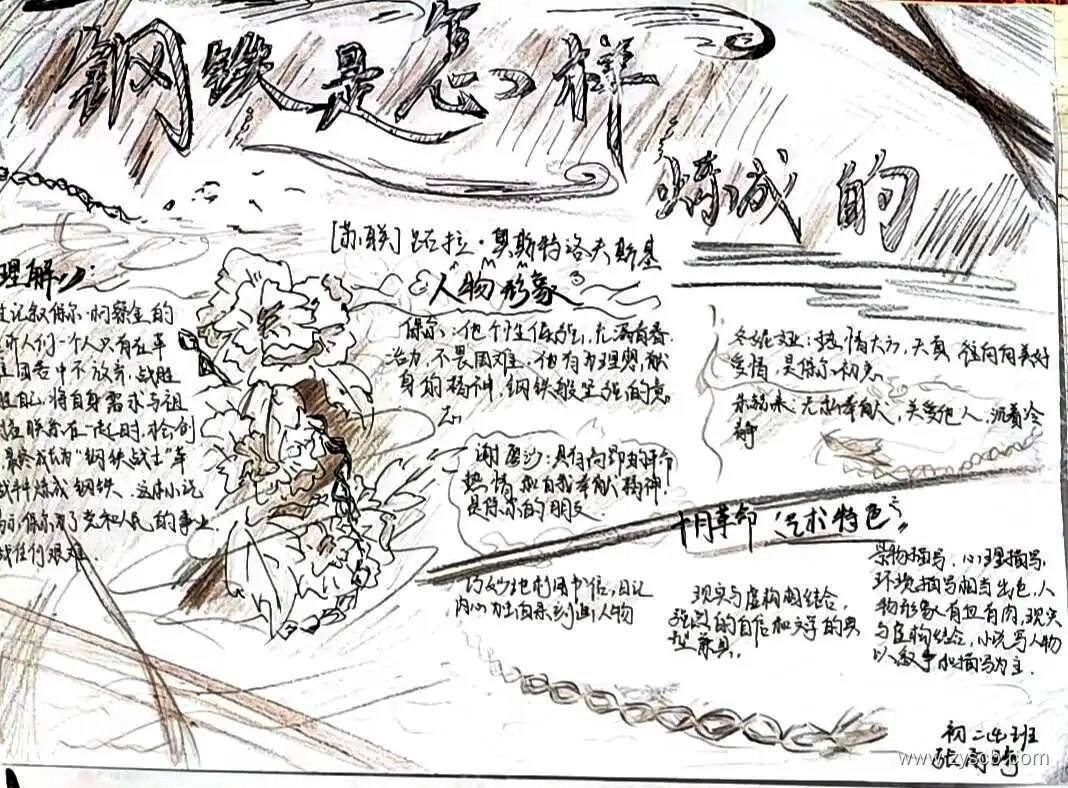 钢铁是怎样
炼成的
[苏联]尼古拉·奥斯特洛夫斯基
理解
记叙保尔·柯察金的
人们一个人只有在革
困苦中不放弃,战胜
自己,将自身需求与祖
联系在一起时,才会创
最终成为"钢铁战士"革
战斗中炼成钢铁.这本小说
示保尔为了党和人民的事业
战任何艰难.
人物形象
保尔:他个性倔强,充满青春
活力,不畏困难.他有为理想,献
身的精神,钢铁般坚强的意
志.
谢廖沙:具有高
热情和自我奉献精神
是保尔的朋友
冬妮娅:热情大方,天真 往向向美好
爱情,是保尔初恋.
朱赫来:无私奉献人,关爱他人,沉着冷
静
十月革命 艺术特色
巧妙地利用书信,日记
内心独白来刻画人物
现实与虚构相结合,
强烈的自传和文学的典
型兼具.
景物描写、心理描写,
环境描写相当出色,人
物形象有血有肉,现实
与虚构结合,小说写人物
以叙事和描写为主.
初二4班
www.zyscb.com